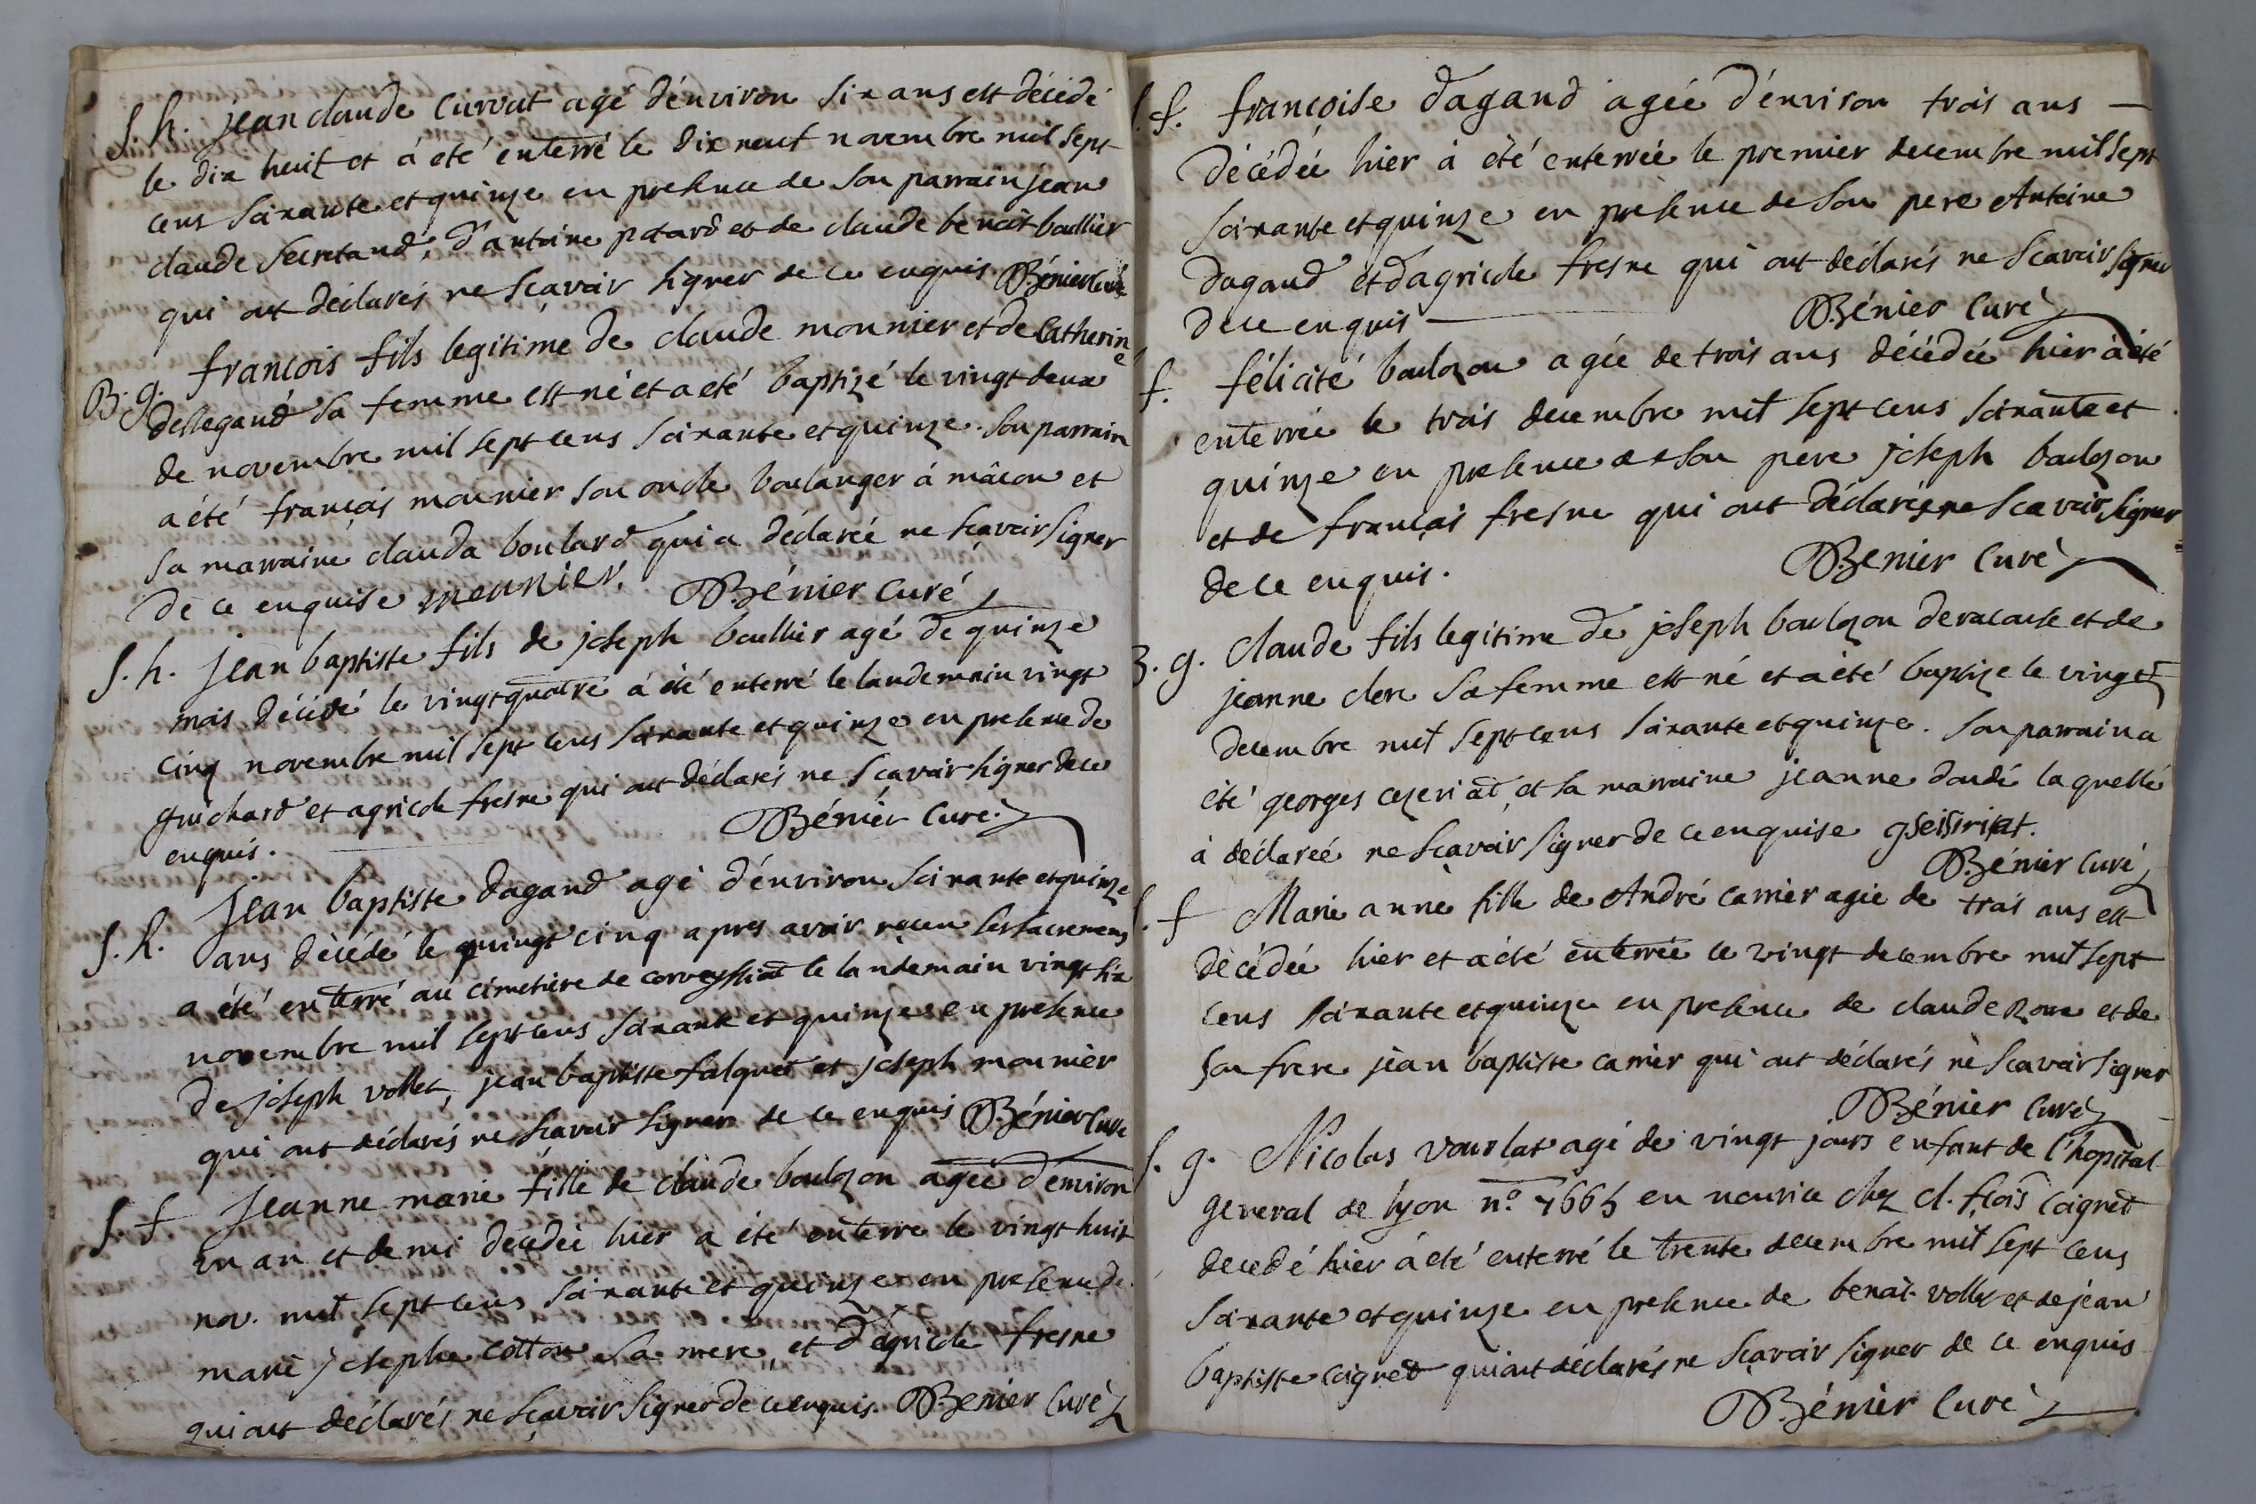 S. h. jean claude curvat agé d'énviron six ans est décédé
le dix huit et á eté enterré le dix neuf novembre mil sept
cens soixante et quinze en presence de son parrain jean
claude secretand, d'antoine patard et de claude benoit boullier
qui ont déclarés ne sçavoir signer de ce enquis Bénier curé
B. g. francois fils legitime de claude monnier et de Catherine
dellegand sa femme est né et a eté baptizé le vingt deux
de novembre mil sept cens soixante et quinze. son parrain
a été francais monnier son oncle boulanger á mâcon et
sa marraine clauda boulard qui a déclarée ne sçavoir signer
de ce enquise monnier. Bénier curé
S. h. jean baptiste fils de joseph boullier agé de quinze
mois décédé le vingt quatre á été enterré le landemain vingt
cinq novembre mil sept cens soixante et quinze en presence de
guichard et agricole fresne qui ont déclarés ne sçavoir signer de ce
enquis. Bénier curé.
S. h. Jean baptiste dagand agé d'énviron soixante et quinze
ans décédé le vingt cinq apres avoir reçeu les sacremens
a été enterré au cimetiere de corveyssiat le landemain vingt six
novembre mil sept cens soixante et quinze en presence
de joseph vollet, jean baptiste falquet et joseph monnier
qui ont déclarés ne sçavoir signer de ce enquis Bénier Curé
S. f Jeanne marie fille de claude boulozon agée d'énviron
un an et demi decedée hier a été enterre le vingt huit
nov. mil sept cens soixante et quinze en presence de
marie josephe cotton sa mere, et d'agricole fresne
qui ont déclarés ne sçavoir signer de ce enquis. Benier Curé
S. f. françoise dagand agée d'énviron trois ans
décédée hier á été enterrée le premier decembre mil sept
soixante et quinze en presence de son pere Antoine
dagand et d'agricole fresne qui ont déclarés ne sçavoir signer
de ce enquis Bénier Curé
f. félicité boulozon agée de trois ans décédée hier á été
enterrée le trois decembre mil sept cens soixante et
quinze en presence de son pere joseph boulozon
et de francais fresne qui ont déclarés ne scavoir signer
de ce enquis. Benier Curé
B. g. claude fils legitime de joseph boulozon de racouse et de
jeanne clere sa femme est né et a été baptize le vingt
decembre mil sept cens soixante et quinze. son parrain a
été georges ceseriat, et sa marraine jeanne doudé laquelle
à déclareé ne sçavoir signer de ce enquise gseisiriat.
Bénier Curé
S. f Marie anne fille de André carrier agée de trois ans est
décédée hier et a été enterrée le vingt decembre mil sept
cens soixante et quinze en presence de claude et de
son frere jean baptiste carrier qui ont déclarés ne scavoir signer
Bénier curé
S. g. Nicolas vourlat agé de vingt jours enfant de l'hopital
general de lyon n.º 7665 en nourice chez cl. fçois coignet
decedé hier á eté enterré le trente decembre mil sept cens
soixante et quinze en presence de benoit vollet et de jean
baptiste coignet qui ont déclarés ne sçavoir signer de ce enquis
Bénier Curé